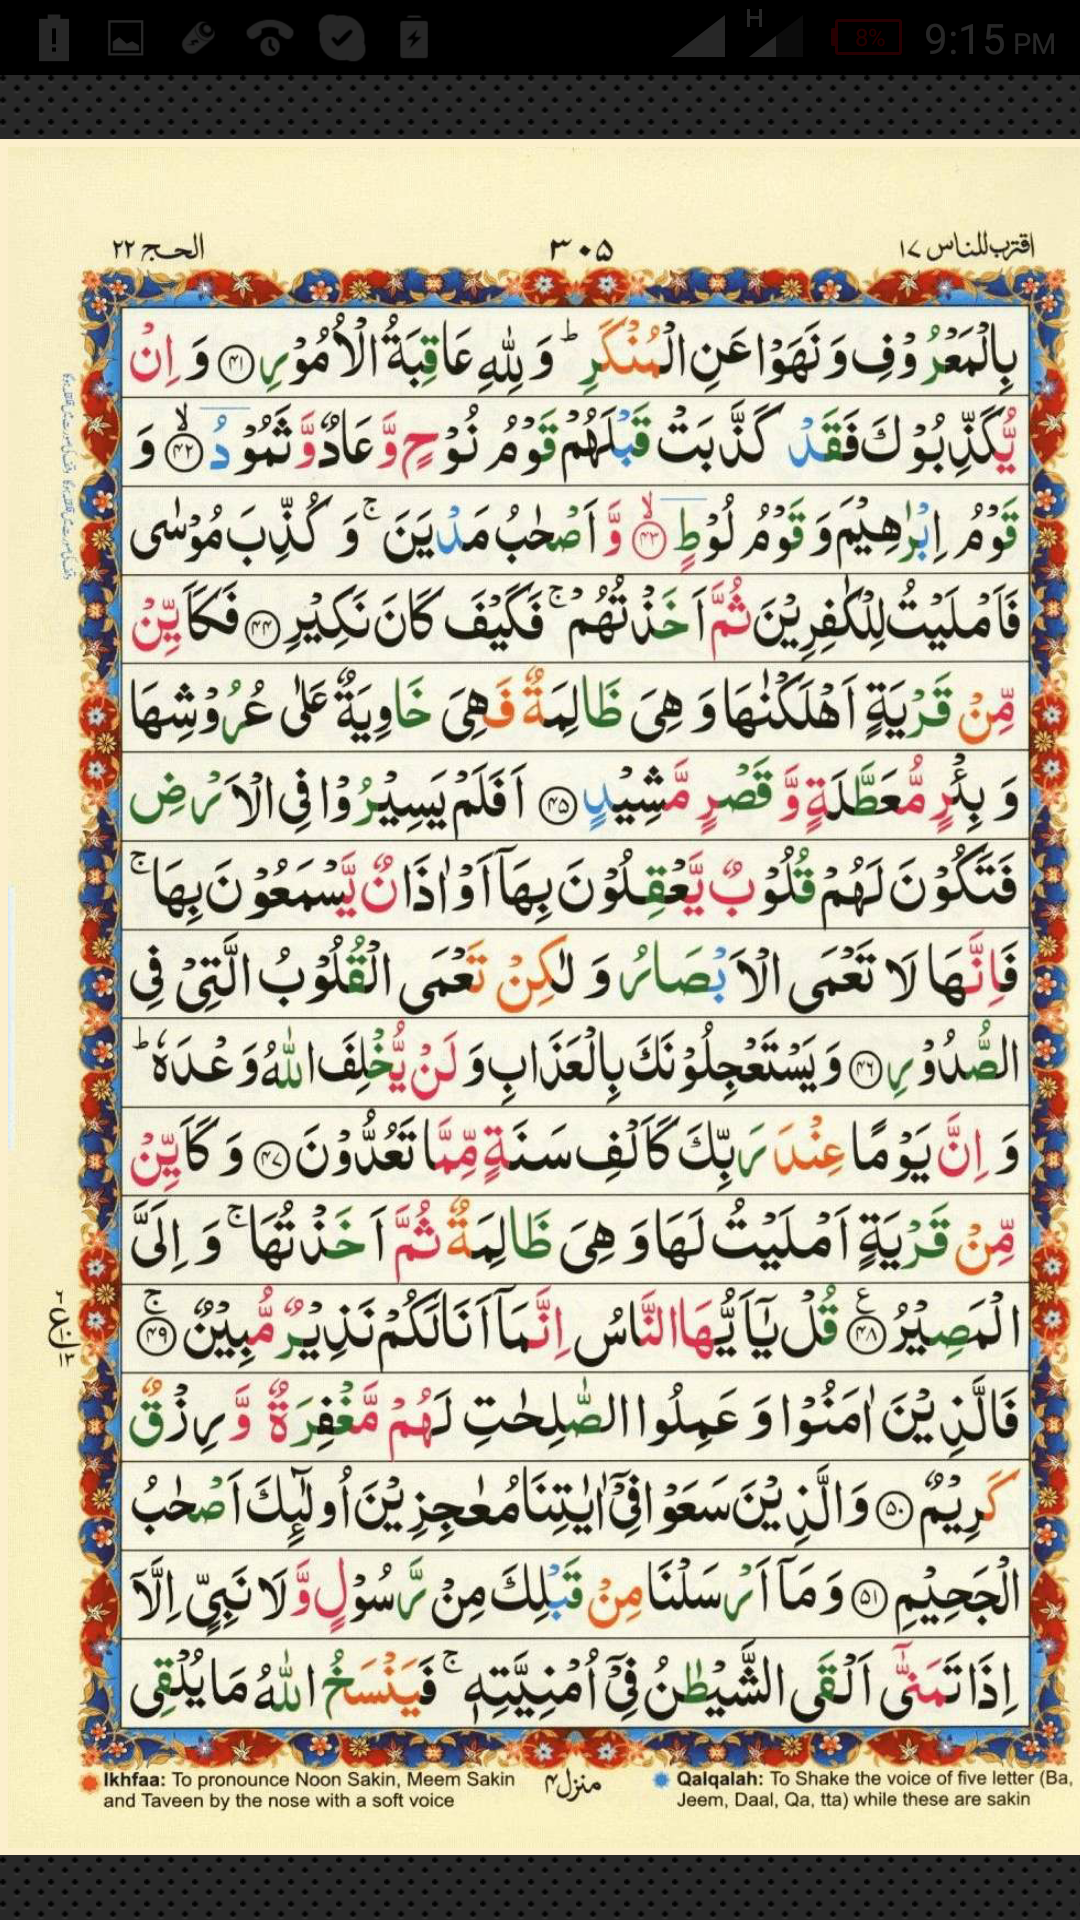 H 8% 9:15 PM
اقترب للناس ١٧ ٣٠٥ الحج ٢٢
بِالْمَعْرُوْفِ وَ نَهَوْا عَنِ الْمُنْكَرِ ؕ وَ لِلّٰهِ عَاقِبَةُ الْاُمُوْرِ ﴿۴۱﴾ وَ اِنْ
يُّكَذِّبُوْكَ فَقَدْ كَذَّبَتْ قَبْلَهُمْ قَوْمُ نُوْحٍ وَّ عَادٌ وَّ ثَمُوْدُ ۙ﴿۴۲﴾ وَ
قَوْمُ اِبْرٰهِيْمَ وَ قَوْمُ لُوْطٍ ۙ﴿۴۳﴾ وَّ اَصْحٰبُ مَدْيَنَ ۚ وَ كُذِّبَ مُوْسٰى
فَاَمْلَيْتُ لِلْكٰفِرِيْنَ ثُمَّ اَخَذْتُهُمْ ۚ فَكَيْفَ كَانَ نَكِيْرِ ﴿۴۴﴾ فَكَاَيِّنْ
مِّنْ قَرْيَةٍ اَهْلَكْنٰهَا وَ هِيَ ظَالِمَةٌ فَهِيَ خَاوِيَةٌ عَلٰى عُرُوْشِهَا
وَ بِئْرٍ مُّعَطَّلَةٍ وَّ قَصْرٍ مَّشِيْدٍ ﴿۴۵﴾ اَفَلَمْ يَسِيْرُوْا فِي الْاَرْضِ
فَتَكُوْنَ لَهُمْ قُلُوْبٌ يَّعْقِلُوْنَ بِهَاۤ اَوْ اٰذَانٌ يَّسْمَعُوْنَ بِهَا ۚ
فَاِنَّهَا لَا تَعْمَى الْاَبْصَارُ وَ لٰكِنْ تَعْمَى الْقُلُوْبُ الَّتِيْ فِي
الصُّدُوْرِ ﴿۴۶﴾ وَ يَسْتَعْجِلُوْنَكَ بِالْعَذَابِ وَ لَنْ يُّخْلِفَ اللّٰهُ وَعْدَهٗ ؕ
وَ اِنَّ يَوْمًا عِنْدَ رَبِّكَ كَاَلْفِ سَنَةٍ مِّمَّا تَعُدُّوْنَ ﴿۴۷﴾ وَ كَاَيِّنْ
مِّنْ قَرْيَةٍ اَمْلَيْتُ لَهَا وَ هِيَ ظَالِمَةٌ ثُمَّ اَخَذْتُهَا ۚ وَ اِلَيَّ
الْمَصِيْرُ ﴿۴۸﴾ ع قُلْ يٰۤاَيُّهَا النَّاسُ اِنَّمَاۤ اَنَا لَكُمْ نَذِيْرٌ مُّبِيْنٌ ۚ﴿۴۹﴾
فَالَّذِيْنَ اٰمَنُوْا وَ عَمِلُوا الصّٰلِحٰتِ لَهُمْ مَّغْفِرَةٌ وَّ رِزْقٌ
كَرِيْمٌ ﴿۵۰﴾ وَ الَّذِيْنَ سَعَوْا فِيْۤ اٰيٰتِنَا مُعٰجِزِيْنَ اُولٰٓئِكَ اَصْحٰبُ
الْجَحِيْمِ ﴿۵۱﴾ وَ مَاۤ اَرْسَلْنَا مِنْ قَبْلِكَ مِنْ رَّسُوْلٍ وَّ لَا نَبِيٍّ اِلَّاۤ
اِذَا تَمَنّٰۤى اَلْقَى الشَّيْطٰنُ فِيْۤ اُمْنِيَّتِهٖ ۚ فَيَنْسَخُ اللّٰهُ مَا يُلْقِي
Ikhfaa: To pronounce Noon Sakin, Meem Sakin
and Taveen by the nose with a soft voice
منزل ۴
Qalqalah: To Shake the voice of five letter (Ba,
Jeem, Daal, Qa, tta) while these are sakin